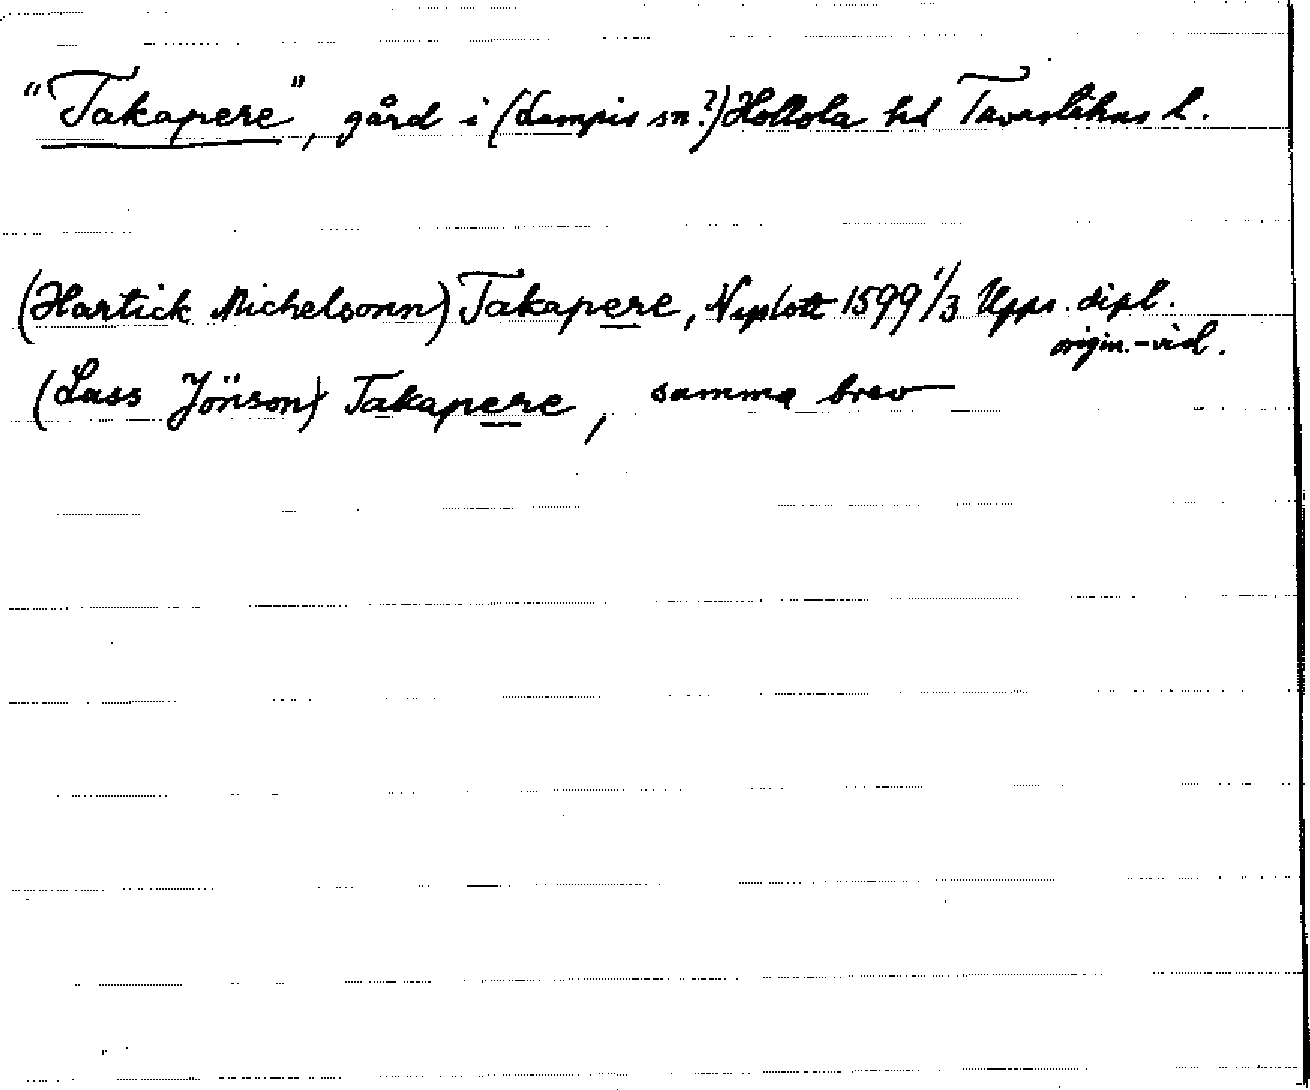 "Takapere", gård i (Lampis sn?) Hollola hd Tavastehus l.
(Hartick Michelsonn) Takapere, Nyslott 1599 1/3 Upps. dipl.
origin.-vid.
(Lass Jönson) Takapere, samma brev